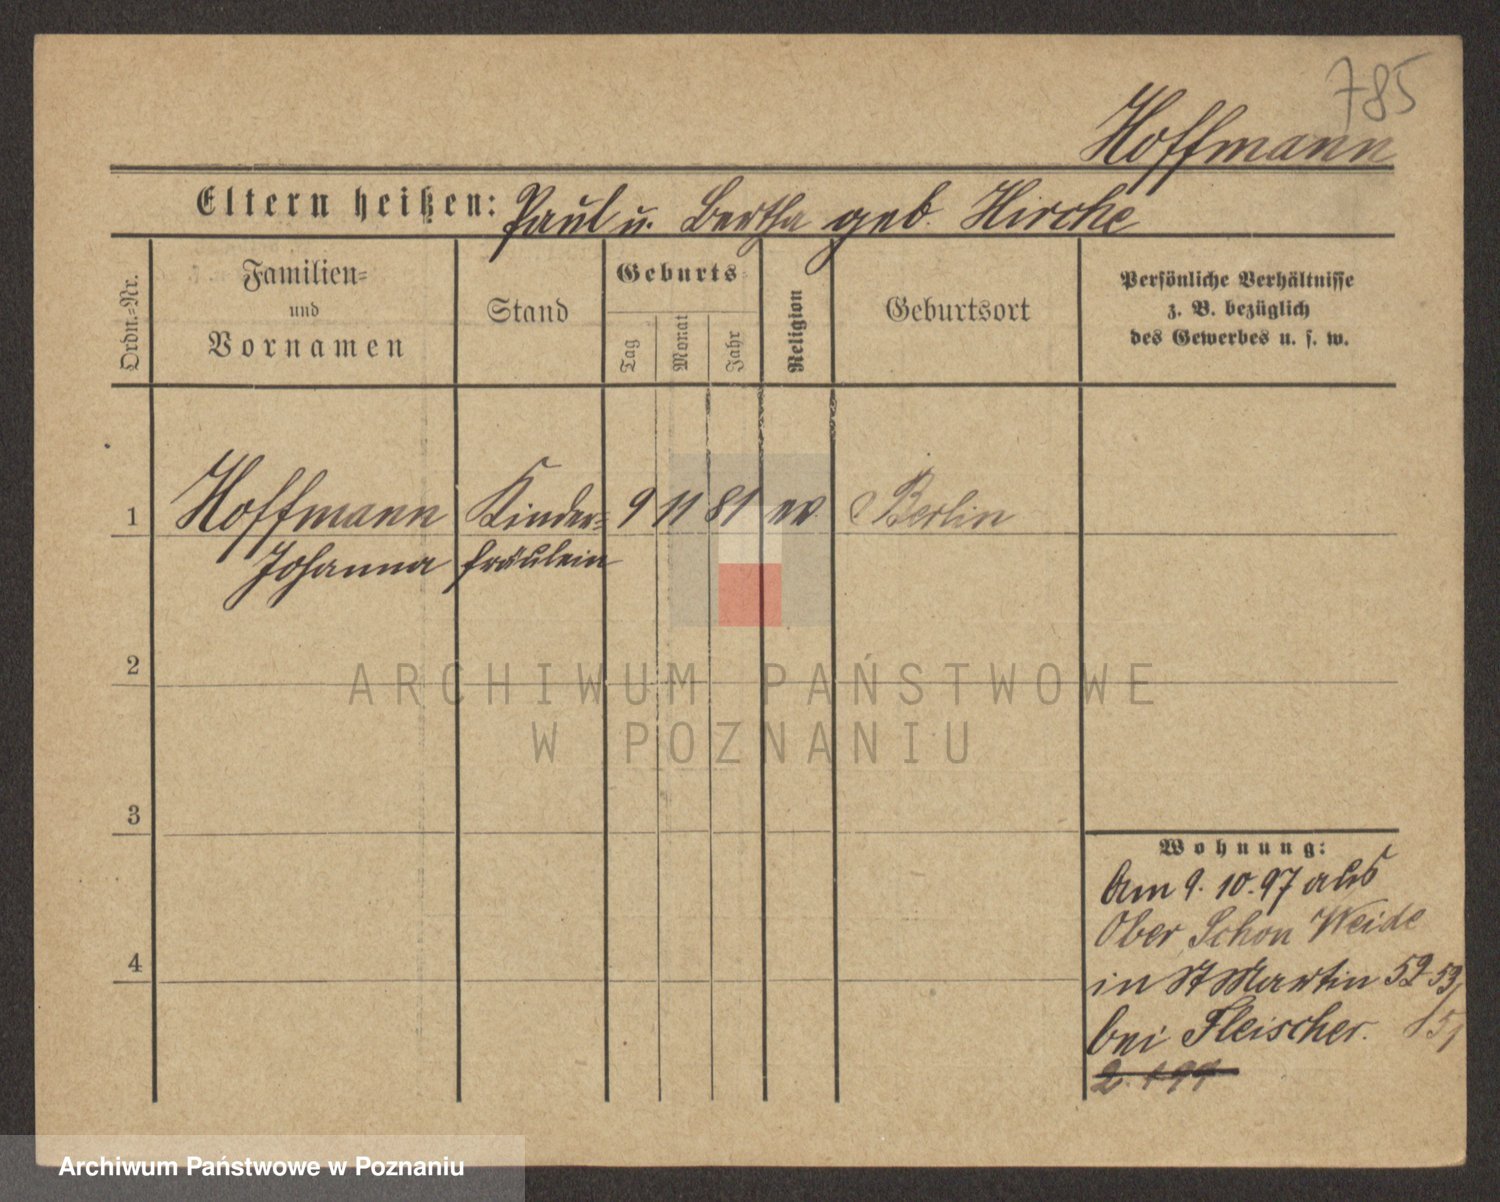 785
Hoffmann
Eltern heißen: Paul u. Bertha geb. Hirche
Ordn.=Nr.
Familien=
und
Vornamen
Stand
Geburts=
Tag
Monat
Jahr
Religion
Geburtsort
Persönliche Verhältnisse
z. B. bezüglich
des Gewerbes u. s. w.
1 Hoffmann Kinder= 9 11 81 ev Berlin
Johanna fräulein
2
ARCHIWUM PAŃSTWOWE
W POZNANIU
3
Wohnung:
Am 9. 10. 97 aus
Ober Schon Weide
4
in St Martin 52 53/
bei Fleischer.
Archiwum Państwowe w Poznaniu